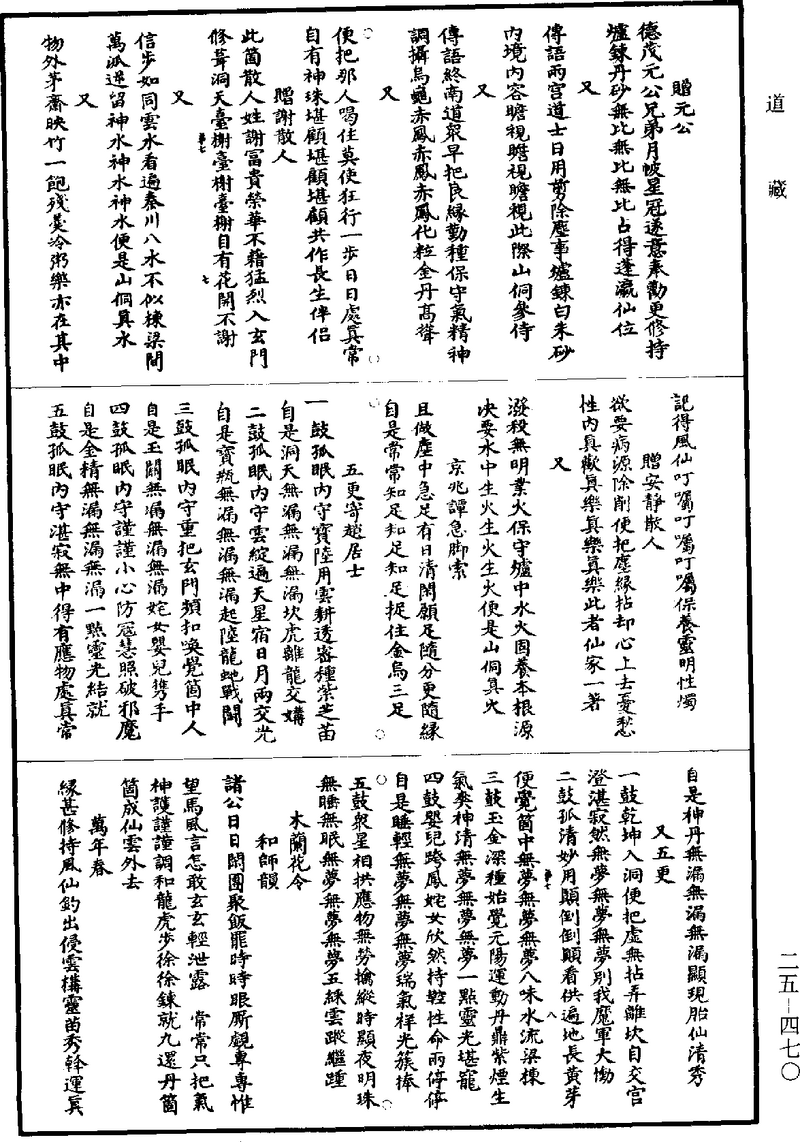 道藏
贈元公
德茂元公兄弟月帔星冠遂意奉勸更修持
爐鍊丹砂無比無比無比占得蓬瀛仙位
又
傳語兩宫道士日用剪除塵事爐鍊白朱砂
内境内容瞻視瞻視瞻視此際山侗參侍
又
傳語終南道衆早把良緣勤種保守氣精神
調攝烏龜赤鳳赤鳳赤鳳化粒金丹髙聳
又
便把那人喝住莫使狂行一步日日處真常
自有神珠堪顧堪顧堪顧共作長生伴侣
贈謝散人
此箇散人姓謝冨貴榮華不藉猛烈入玄門
修葺洞天臺榭臺榭臺榭自有花開不謝
又
信步如同雲水看遍秦川八水不似棟梁間
萬派逆留神水神水神水便是山侗真水
又
物外茅齋映竹一飽殘羮冷粥樂亦在其中
記得風仙叮囑叮囑叮囑保養靈明性燭
贈安静散人
欲要病源除削便把塵緣拈却心上去憂愁
性内真歡真樂真樂真樂此者仙家一著
又
潑殺無明業火保守爐中水火固養本根源
决要水中生火生火生火便是山侗真火
京兆譚急脚索
且做塵中急足有日清閑願足隨分更隨緣
自是常常知足知足知足捉住金烏三足
五更寄趙居士
一鼓孤眠内守寳陸用雲耕透密種紫芝苗
自是洞天無漏無漏無漏坎虎離龍交媾
二鼓孤眠内守雲綻遍天星宿日月兩交光
自是寳瓶無漏無漏無漏起陸龍虵戰鬭
三鼓孤眠内守重把玄門頻扣喚覺箇中人
自是玉關無漏無漏無漏姹女嬰兒携手
四鼓孤眠内守謹謹小心防寇慧照破邪魔
自是金精無漏無漏無漏一點靈光結就
五鼓孤眠内守湛寂無中得有應物處真常
自是神丹無漏無漏無漏顯現胎仙清秀
又五更
一鼓乾坤入洞便把虚無拈弄離坎自交宫
澄湛寂然無夢無夢無夢别我魔軍大慟
二鼓孤清妙用顛倒倒顛看供遍地長黄芽
便覺箇中無夢無夢無夢八味水流梁棟
三鼓玉金深種始覺元陽運動丹鼎紫煙生
氣爽神清無夢無夢無夢一點靈光堪寵
四鼓嬰兒跨鳳姹女欣然持鞚性命兩停停
自是睡輕無夢無夢無夢瑞氣祥光簇捧
五鼓衆星相拱應物無勞擒縱時顯夜明珠
無睡無眠無夢無夢無夢五綵雲蹤繼踵
木蘭花令
和師韻
諸公日日閑團聚飯罷時時眼厮覷專專惟
望馬風言怎敢玄玄輕泄露　常常只把氣
神護謹謹調和龍虎步徐徐鍊就九還丹箇
箇成仙雲外去
萬年春
緣甚修持風仙釣出侵雲構靈苗秀幹運真
二五－四七〇